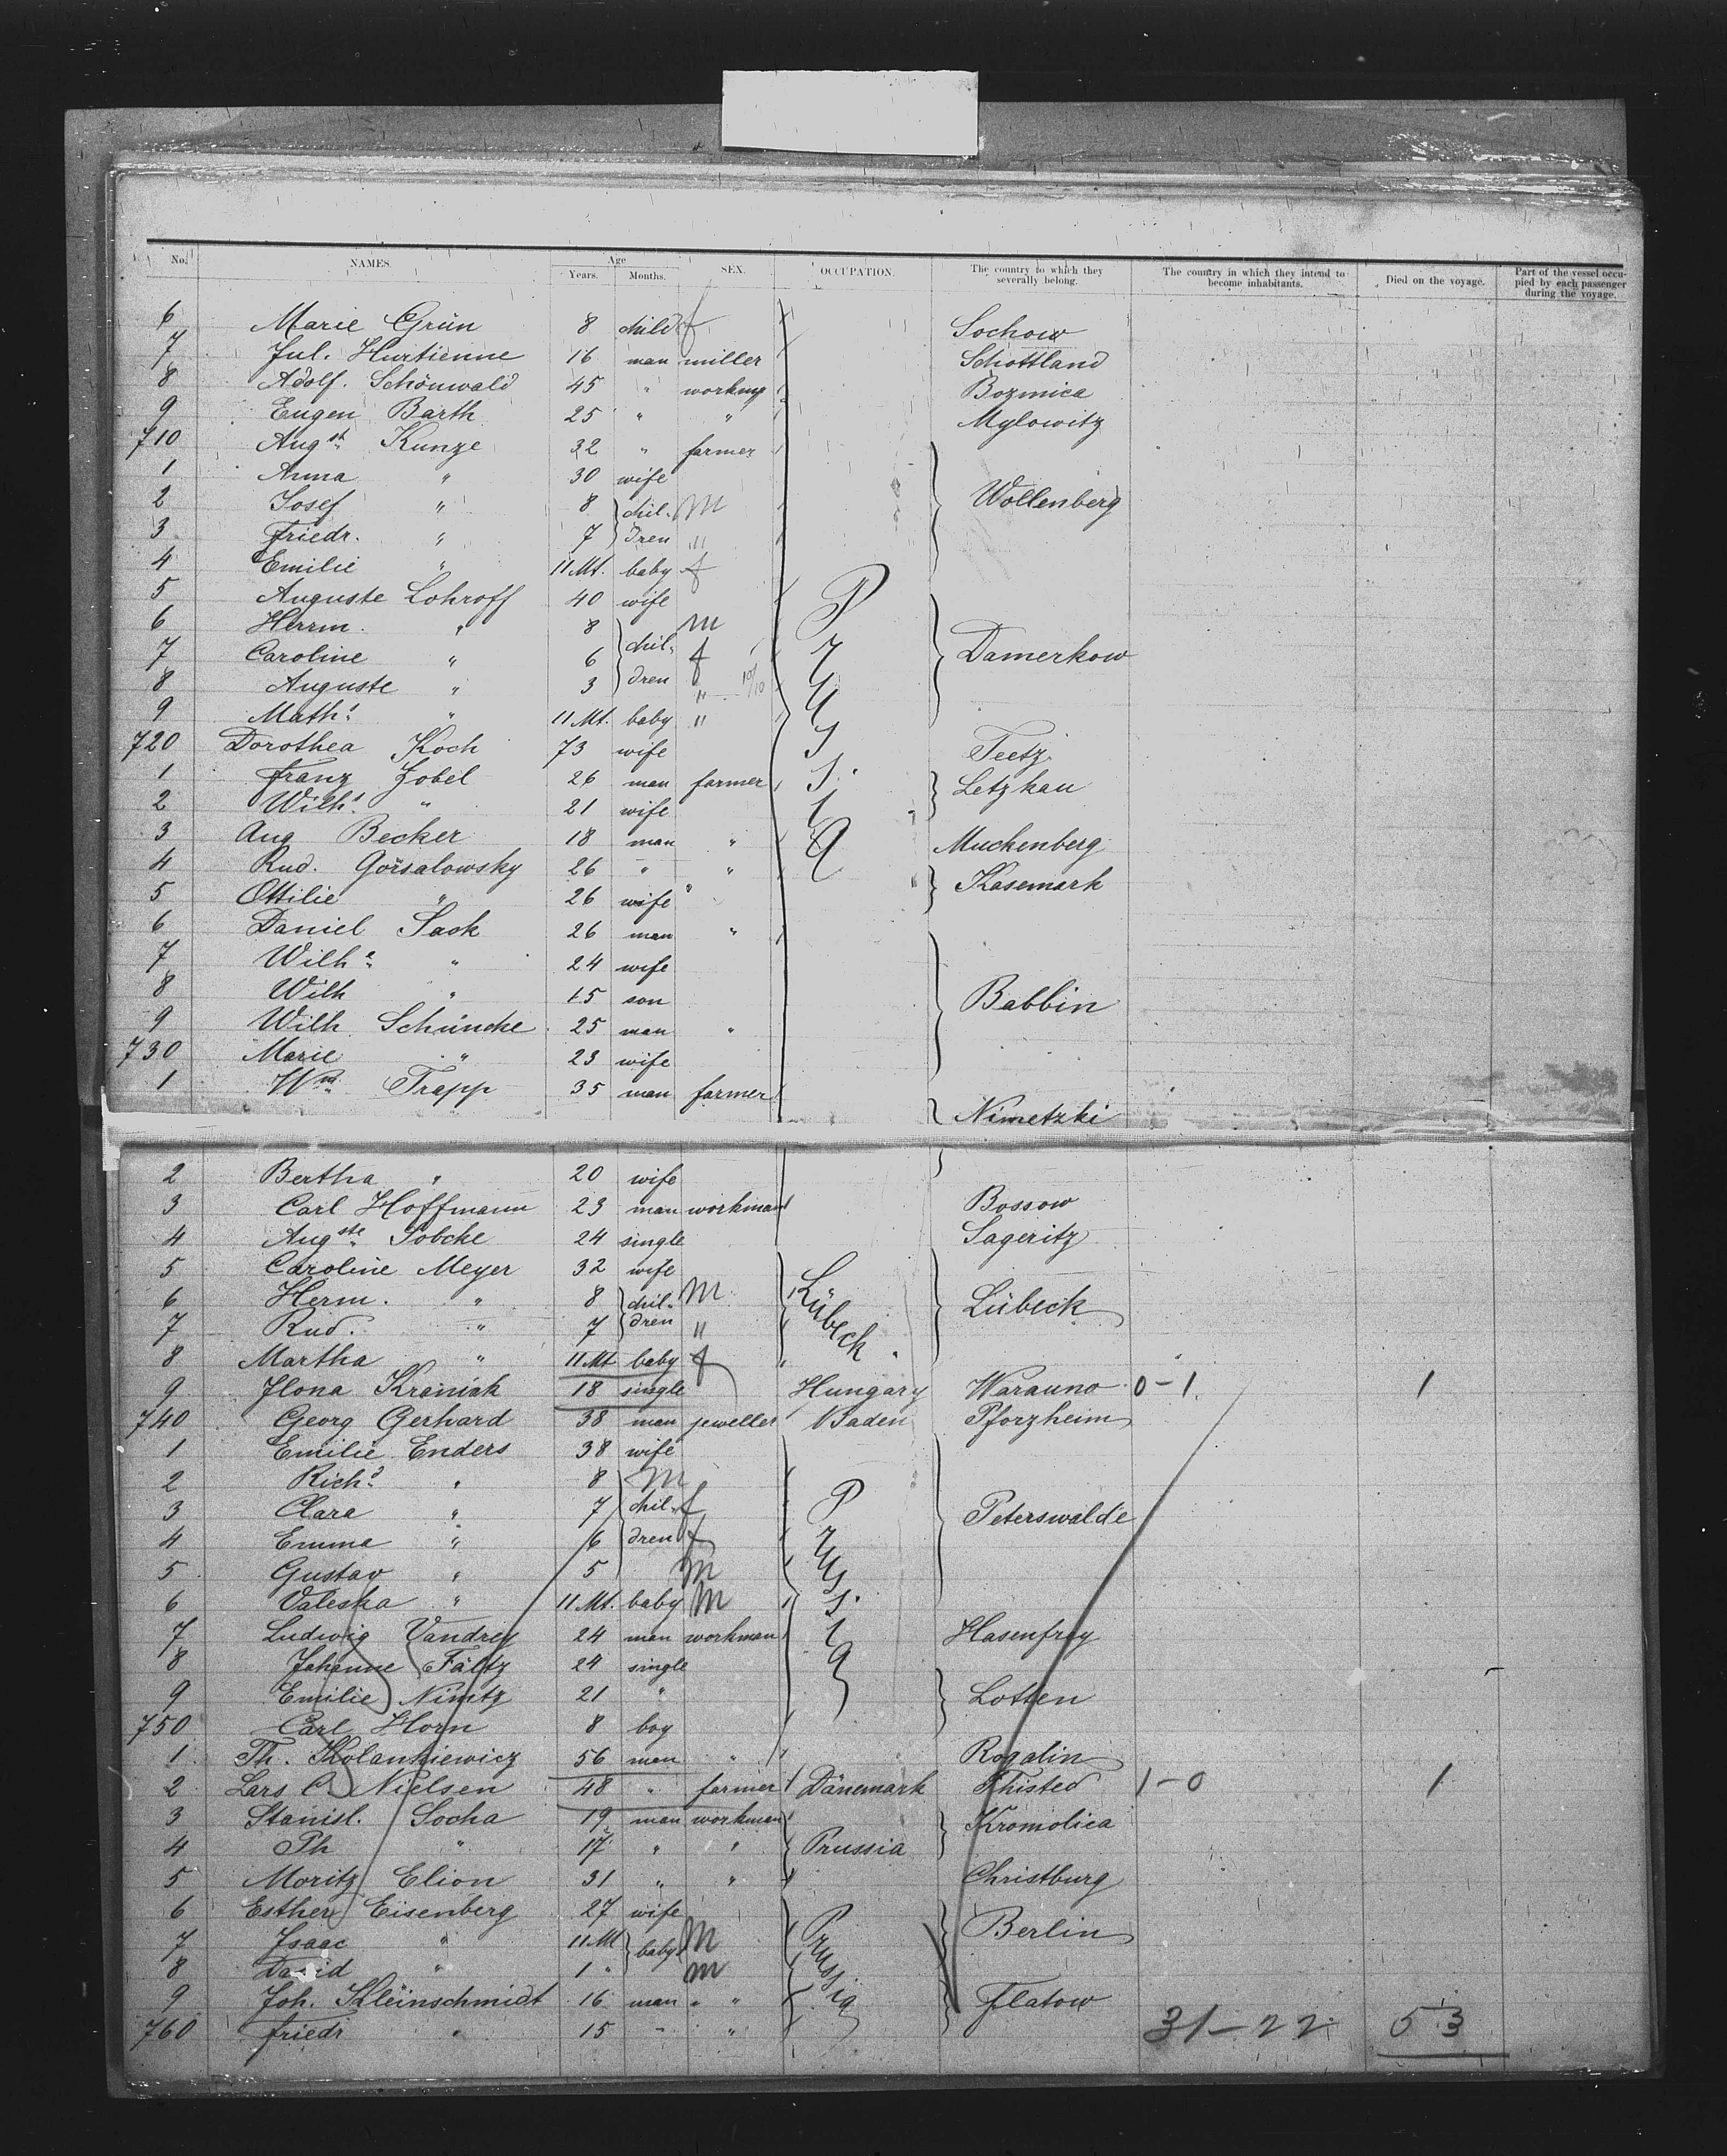 No. NAMES. Age Years. Months. SEX. OCCUPATION. The country to which they severally belong. The country in which they intend to become inhabitants. Died on the voyage. Part of the vessel occupied by each passenger during the voyage.
6 Marie Grün 8 child f Sochow
7 Jul. Hurtienne 16 man miller Schottland
8 Adolf. Schönwald 45 " working Bozmica
9 Eugen Barth 25 " " Mylowitz
710 Augst Kunze 32 " farmer
1 Anna " 30 wife Wollenberg
2 Josef " 8 chil- M
3 Friedr. " 7 dren "
4 Emilie " 11 Mt. baby f
5 Auguste Lohroff 40 wife Prussia
6 Herrm. " 8 m
7 Caroline " 6 chil- f Damerkow
8 Auguste " 3 dren " 10/10
9 Mathe " 11 Mt. baby "
720 Dorothea Koch 73 wife Teetz
1 Franz Zobel 26 man farmer Letzkau
2 Wilhe " 21 wife
3 Aug Becker 18 man " Muckenberg
4 Rud. Görsalowsky 26 " " Kasemark
5 Ottilie " 26 wife "
6 Daniel Sack 26 man "
7 Wilhe " 24 wife
8 Wilh " 15 son Babbin
9 Wilh Schüncke 25 man "
730 Marie " 23 wife
1 Wm Trapp 35 man farmer Nimetzki
2 Bertha " 20 wife
3 Carl Hoffmann 23 man workman Bossow
4 Augste Sobcke 24 single Sageritz
5 Caroline Meyer 32 wife Lübeck
6 Herm. " 8 chil- M Lübeck
7 Rud. " 7 dren "
8 Martha " 11 Mt baby f
9 Ilona Kraniak 18 single Hungary Warauno 0-1 1
740 Georg Gerhard 38 man jeweller Baden Pforzheim
1 Emilie Enders 38 wife
2 Richd " 8 M Prussia
3 Clara " 7 chil- f Peterswalde
4 Emma " 6 dren f
5 Gustav " 5 M
6 Valeska " 11 Mt. baby M
7 Ludwig Vandrey 24 man workman Hasenfray
8 Johanne Fältz 24 single
9 Emilie Nimtz 21 " Lotten
750 Carl Horn 8 boy
1 Th. Kolankiewicz 56 man " Rogalin
2 Lars C. Nielsen 48 " farmer Dänemark Thisted 1-0 1
3 Stanisl. Socha 19 man workman Kromolica
4 Th " 17 " " Prussia
5 Moritz Elion 31 " " Christburg
6 Esther Eisenberg 27 wife Prussia Berlin
7 Isaac " 11 Mt baby M
8 David " 1 " m
9 Joh. Kleinschmidt 16 man " " Flatow
760 Friedr " 15 " " 31-22 53